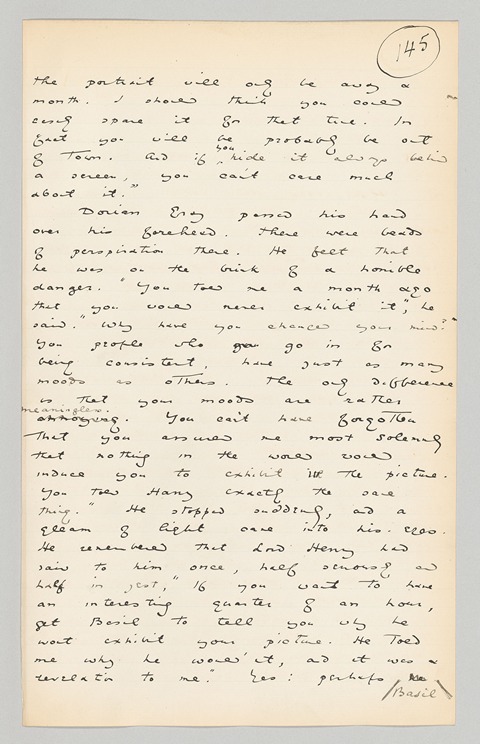 145
the portrait will only be away a
month. I should think you could
easily spare it for that time. In
fact you will be probably be out
of Town. And if you hide it always behind
a screen, you can't care much
about it."
Dorian Gray passed his hand
over his forehead. There were beads
of perspiration there. He felt that
he was on the brink of a horrible
danger. "You told me a month ago
that you would never exhibit it", he
said. "Why have you changed your mind?"
You people who go in for
being consistent, have just as many
moods as others. The only difference
is that your moods are rather
meaningless.
annoying. You can't have forgotten
that you assured me most solemnly
that nothing in the world would
induce you to exhibit the picture.
You told Harry exactly the same
thing." He stopped suddenly, and a
gleam of light came into his eyes.
He remembered that Lord Henry had
said to him once, half seriously and
half in jest, "If you want to have
an interesting quarter of an hour,
get Basil to tell you why he
wont exhibit your picture. He Told
me why he would'nt, and it was a
revelation to me." Yes: perhaps
Basil